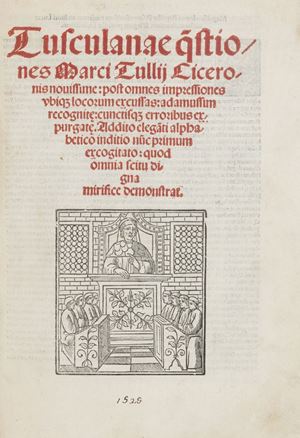 Tusculanae q̃stio/
nes Marci Tullij Cicero-
nis nouissime: post omnes impressiones
vbiq; locorum excussas: adamussim
recognite: cunctisq; erroribus ex,
purgatę. Addito elegãti alpha,
betico inditio nũc primum
excogitato: quod
omnia scitu di
gna
mirifice demonstrat.
1528